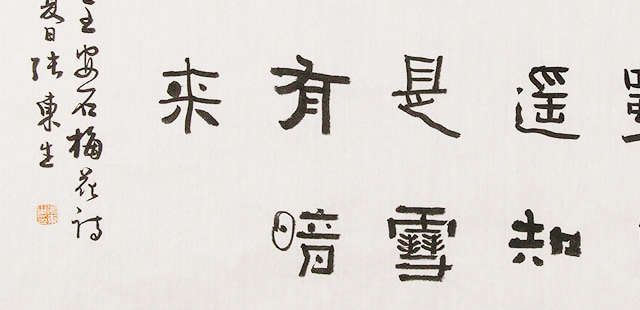 遥知
是雪
有暗
来
王安石梅花诗
夏日张東生